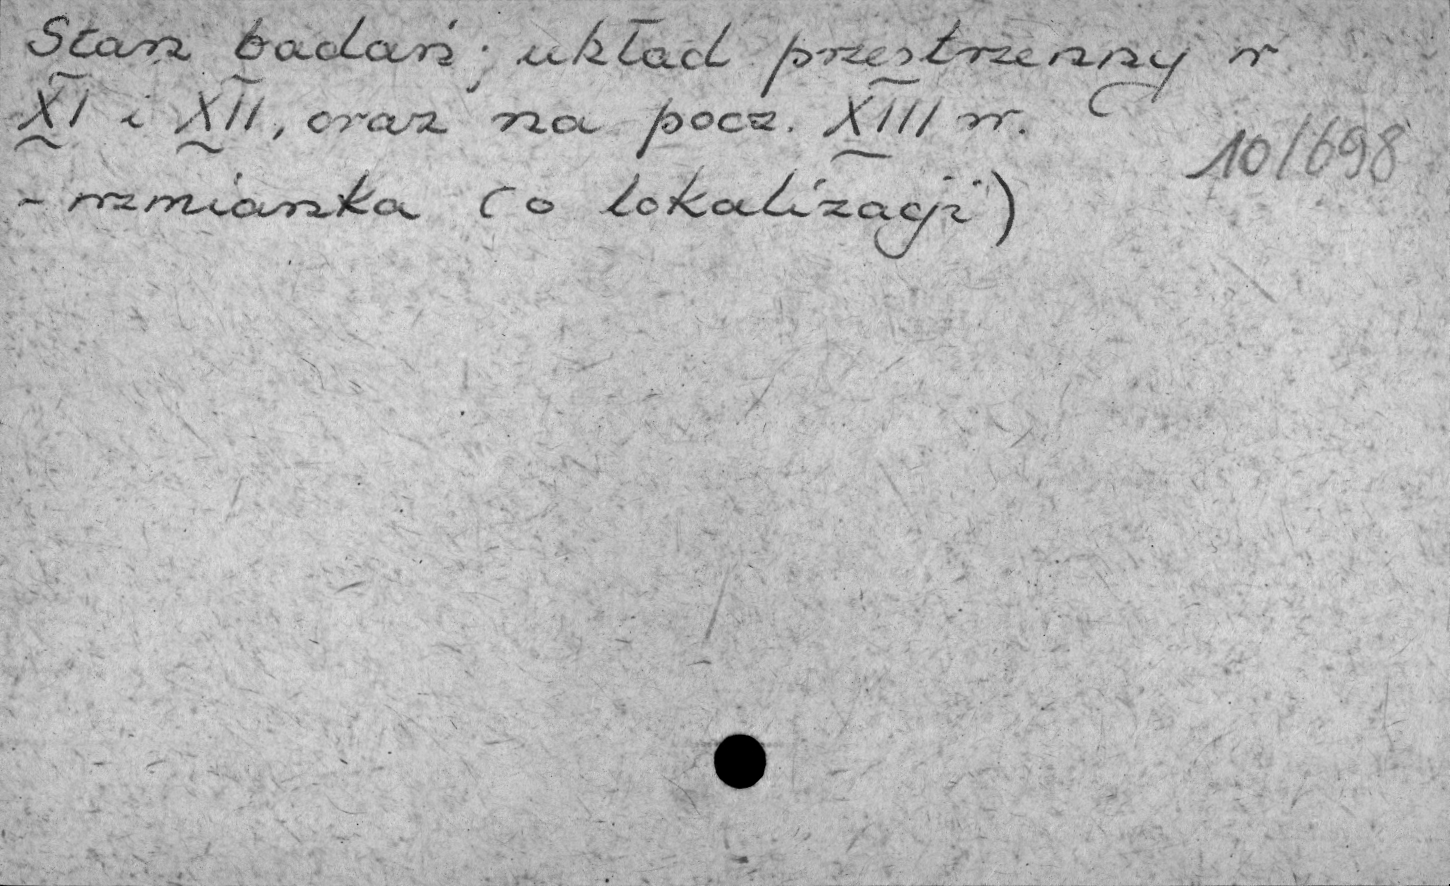 Stan badań; układ przestrzenny w
XI i XII, oraz na pocz. XIII w.
10/698
- wzmianka (o lokalizacji)